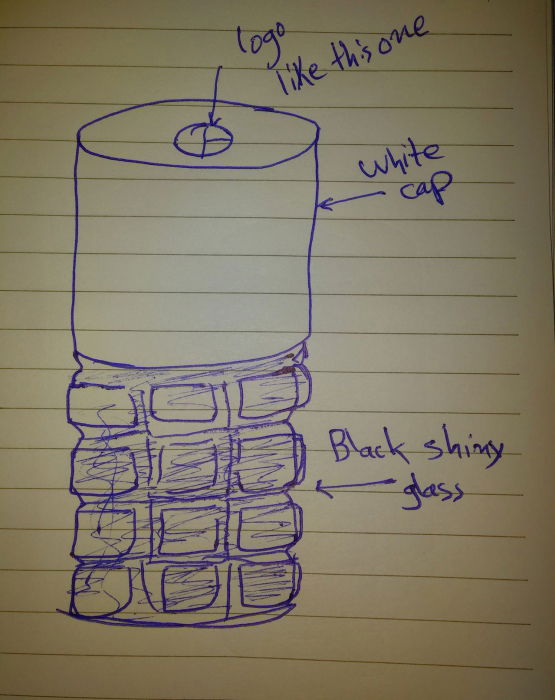 logo
like this one
white
cap
Black shiny
glass